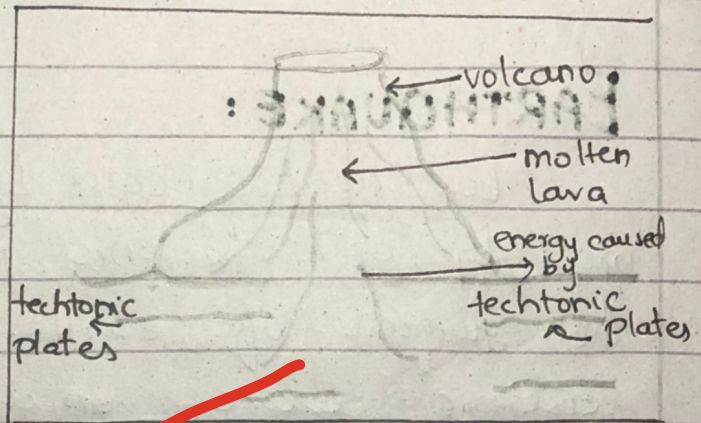 volcano
EARTHQUAKE :
molten
lava
energy caused
by
techtonic
plates
techtonic
plates